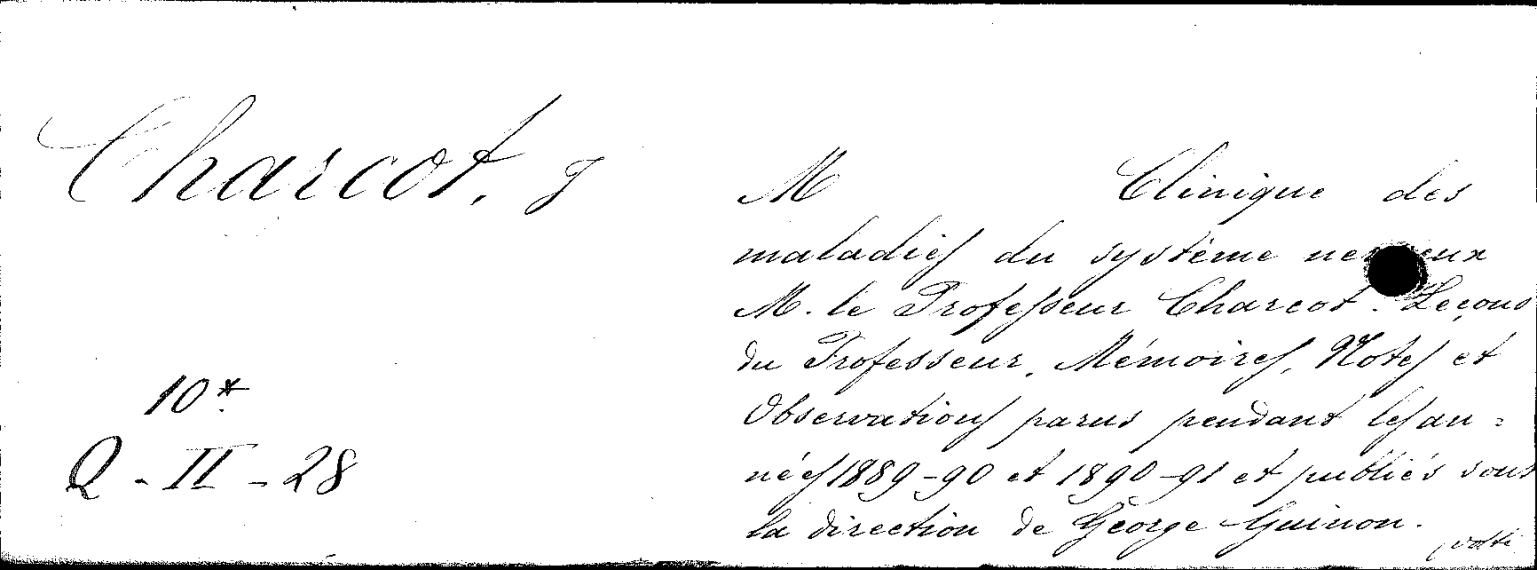 Charcot, J
M Clinique des
maladies du système nerveux
M. le Professeur Charcot. Leçons
du Professeur, Mémoires, Notes et
Observations parus pendant les an=
nées 1889-90 et 1890-91 et publiés sous
la direction de George Guinon.
volti
10*
Q-II-28